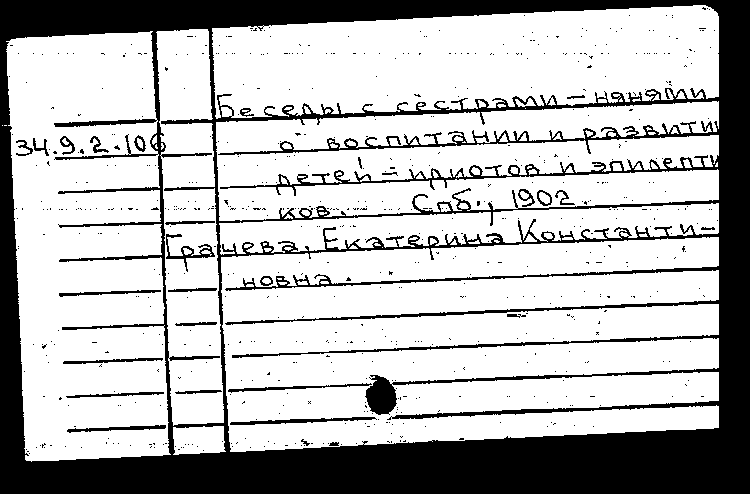 Беседы с сестрами-нянями
34.9.2.106 о воспитании и развити
детей-идиотов и эпилепти
ков. Спб., 1902.
Грачева, Екатерина Константи-
новна.